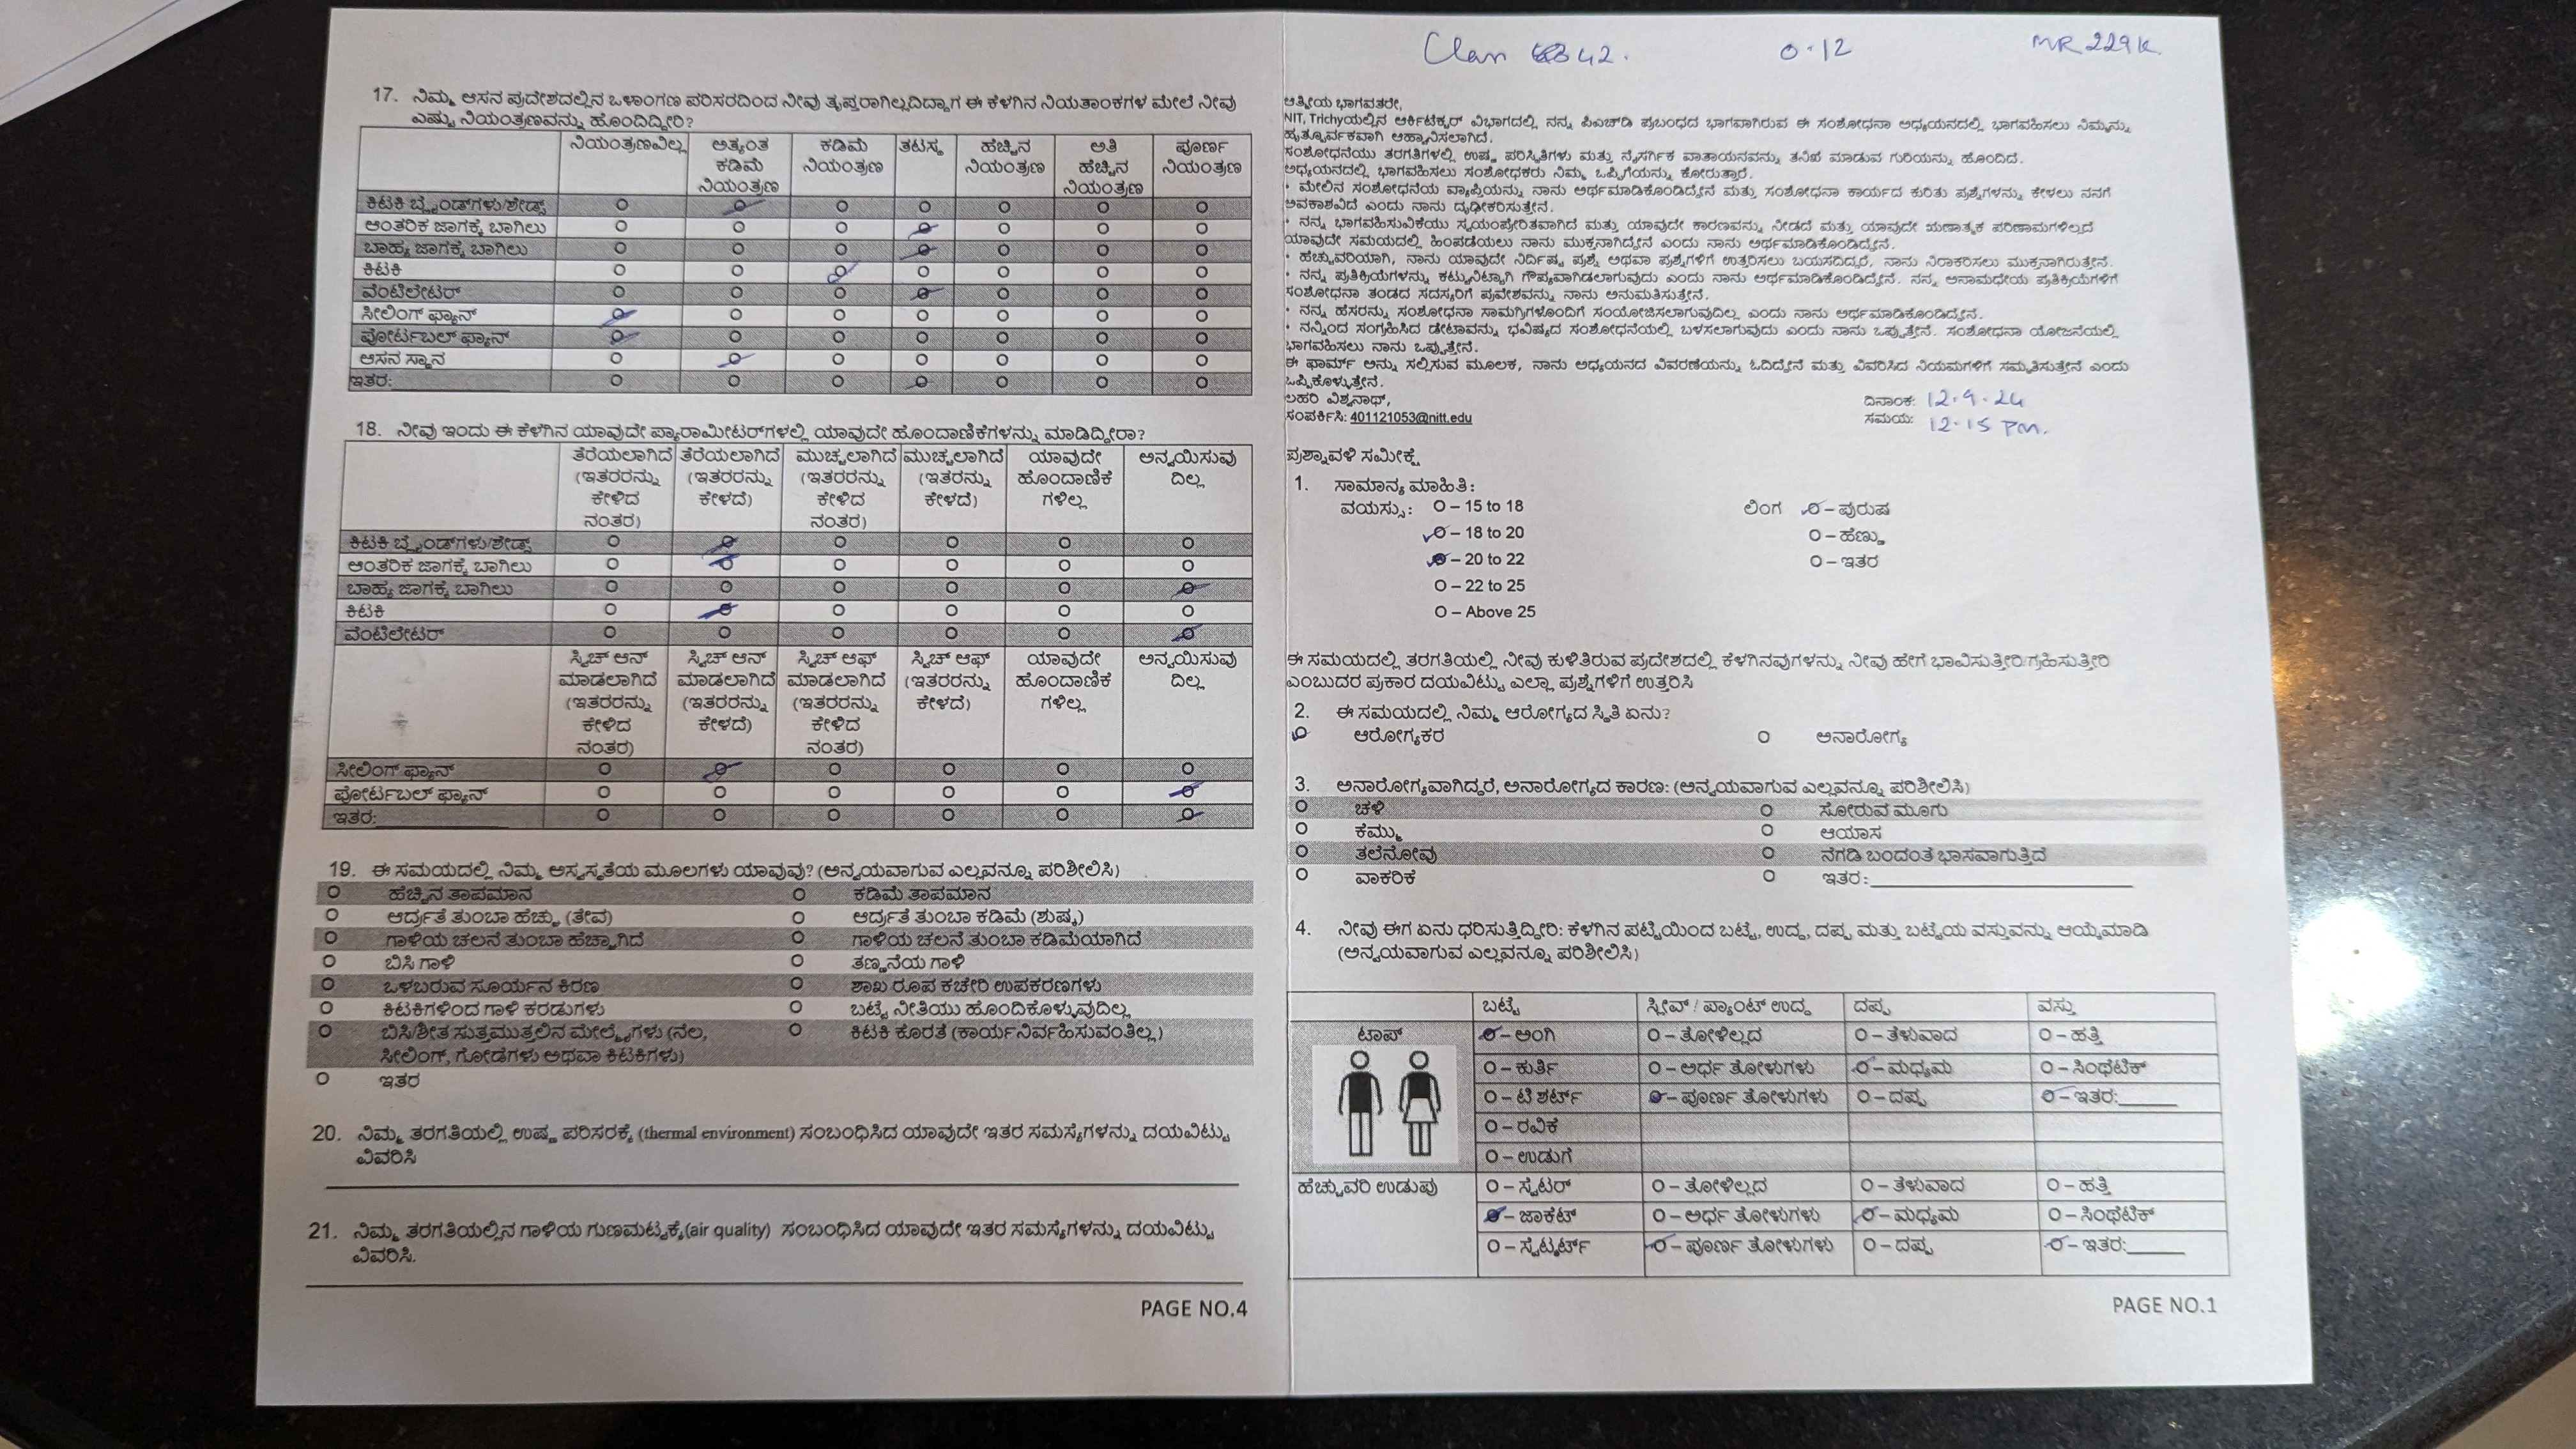 17. ನಿಮ್ಮ ಆಸನ ಪ್ರದೇಶದಲ್ಲಿನ ಒಳಾಂಗಣ ಪರಿಸರದಿಂದ ನೀವು ತೃಪ್ತರಾಗಿಲ್ಲದಿದ್ದಾಗ ಈ ಕೆಳಗಿನ ನಿಯತಾಂಕಗಳ ಮೇಲೆ ನೀವು
ಎಷ್ಟು ನಿಯಂತ್ರಣವನ್ನು ಹೊಂದಿದ್ದೀರಿ?
ನಿಯಂತ್ರಣವಿಲ್ಲ ಅತ್ಯಂತ ಕಡಿಮೆ ನಿಯಂತ್ರಣ ಕಡಿಮೆ ನಿಯಂತ್ರಣ ತಟಸ್ಥ ಹೆಚ್ಚಿನ ನಿಯಂತ್ರಣ ಅತಿ ಹೆಚ್ಚಿನ ನಿಯಂತ್ರಣ ಪೂರ್ಣ ನಿಯಂತ್ರಣ
ಕಿಟಕಿ ಬ್ಲೈಂಡ್‌ಗಳು/ಶೇಡ್ಸ್
ಆಂತರಿಕ ಜಾಗಕ್ಕೆ ಬಾಗಿಲು
ಬಾಹ್ಯ ಜಾಗಕ್ಕೆ ಬಾಗಿಲು
ಕಿಟಕಿ
ವೆಂಟಿಲೇಟರ್
ಸೀಲಿಂಗ್ ಫ್ಯಾನ್
ಪೋರ್ಟಬಲ್ ಫ್ಯಾನ್
ಆಸನ ಸ್ಥಾನ
ಇತರ:
18. ನೀವು ಇಂದು ಈ ಕೆಳಗಿನ ಯಾವುದೇ ಪ್ಯಾರಾಮೀಟರ್‌ಗಳಲ್ಲಿ ಯಾವುದೇ ಹೊಂದಾಣಿಕೆಗಳನ್ನು ಮಾಡಿದ್ದೀರಾ?
ತೆರೆಯಲಾಗಿದೆ (ಇತರರನ್ನು ಕೇಳಿದ ನಂತರ) ತೆರೆಯಲಾಗಿದೆ (ಇತರರನ್ನು ಕೇಳದೆ) ಮುಚ್ಚಲಾಗಿದೆ (ಇತರರನ್ನು ಕೇಳಿದ ನಂತರ) ಮುಚ್ಚಲಾಗಿದೆ (ಇತರರನ್ನು ಕೇಳದೆ) ಯಾವುದೇ ಹೊಂದಾಣಿಕೆ ಗಳಿಲ್ಲ ಅನ್ವಯಿಸುವು ದಿಲ್ಲ
ಕಿಟಕಿ ಬ್ಲೈಂಡ್‌ಗಳು/ಶೇಡ್ಸ್
ಆಂತರಿಕ ಜಾಗಕ್ಕೆ ಬಾಗಿಲು
ಬಾಹ್ಯ ಜಾಗಕ್ಕೆ ಬಾಗಿಲು
ಕಿಟಕಿ
ವೆಂಟಿಲೇಟರ್
ಸ್ವಿಚ್ ಆನ್ ಮಾಡಲಾಗಿದೆ (ಇತರರನ್ನು ಕೇಳಿದ ನಂತರ) ಸ್ವಿಚ್ ಆನ್ ಮಾಡಲಾಗಿದೆ (ಇತರರನ್ನು ಕೇಳದೆ) ಸ್ವಿಚ್ ಆಫ್ ಮಾಡಲಾಗಿದೆ (ಇತರರನ್ನು ಕೇಳಿದ ನಂತರ) ಸ್ವಿಚ್ ಆಫ್ (ಇತರರನ್ನು ಕೇಳದೆ) ಯಾವುದೇ ಹೊಂದಾಣಿಕೆ ಗಳಿಲ್ಲ ಅನ್ವಯಿಸುವು ದಿಲ್ಲ
ಸೀಲಿಂಗ್ ಫ್ಯಾನ್
ಪೋರ್ಟಬಲ್ ಫ್ಯಾನ್
ಇತರ:
19. ಈ ಸಮಯದಲ್ಲಿ ನಿಮ್ಮ ಅಸ್ವಸ್ಥತೆಯ ಮೂಲಗಳು ಯಾವುವು? (ಅನ್ವಯವಾಗುವ ಎಲ್ಲವನ್ನೂ ಪರಿಶೀಲಿಸಿ)
ಹೆಚ್ಚಿನ ತಾಪಮಾನ ಕಡಿಮೆ ತಾಪಮಾನ
ಆರ್ದ್ರತೆ ತುಂಬಾ ಹೆಚ್ಚು (ತೇವ) ಆರ್ದ್ರತೆ ತುಂಬಾ ಕಡಿಮೆ (ಶುಷ್ಕ)
ಗಾಳಿಯ ಚಲನೆ ತುಂಬಾ ಹೆಚ್ಚಾಗಿದೆ ಗಾಳಿಯ ಚಲನೆ ತುಂಬಾ ಕಡಿಮೆಯಾಗಿದೆ
ಬಿಸಿ ಗಾಳಿ ತಣ್ಣನೆಯ ಗಾಳಿ
ಒಳಬರುವ ಸೂರ್ಯನ ಕಿರಣ ಶಾಖ ರೂಪ ಕಚೇರಿ ಉಪಕರಣಗಳು
ಕಿಟಕಿಗಳಿಂದ ಗಾಳಿ ಕರಡುಗಳು ಬಟ್ಟೆ ನೀತಿಯು ಹೊಂದಿಕೊಳ್ಳುವುದಿಲ್ಲ
ಬಿಸಿ/ಶೀತ ಸುತ್ತಮುತ್ತಲಿನ ಮೇಲ್ಮೈಗಳು (ನೆಲ, ಕಿಟಕಿ ಕೊರತೆ (ಕಾರ್ಯನಿರ್ವಹಿಸುವಂತಿಲ್ಲ)
ಸೀಲಿಂಗ್, ಗೋಡೆಗಳು ಅಥವಾ ಕಿಟಕಿಗಳು)
ಇತರ
20. ನಿಮ್ಮ ತರಗತಿಯಲ್ಲಿ ಉಷ್ಣ ಪರಿಸರಕ್ಕೆ (thermal environment) ಸಂಬಂಧಿಸಿದ ಯಾವುದೇ ಇತರ ಸಮಸ್ಯೆಗಳನ್ನು ದಯವಿಟ್ಟು
ವಿವರಿಸಿ
21. ನಿಮ್ಮ ತರಗತಿಯಲ್ಲಿನ ಗಾಳಿಯ ಗುಣಮಟ್ಟಕ್ಕೆ (air quality) ಸಂಬಂಧಿಸಿದ ಯಾವುದೇ ಇತರ ಸಮಸ್ಯೆಗಳನ್ನು ದಯವಿಟ್ಟು
ವಿವರಿಸಿ.
PAGE NO.4
42. 0.12 MR 229K
ಆತ್ಮೀಯ ಭಾಗವತರೇ,
NIT, Trichyಯಲ್ಲಿನ ಆರ್ಕಿಟೆಕ್ಚರ್ ವಿಭಾಗದಲ್ಲಿ ನನ್ನ ಪಿಎಚ್‌ಡಿ ಪ್ರಬಂಧದ ಭಾಗವಾಗಿರುವ ಈ ಸಂಶೋಧನಾ ಅಧ್ಯಯನದಲ್ಲಿ ಭಾಗವಹಿಸಲು ನಿಮ್ಮನ್ನು
ಹೃತ್ಪೂರ್ವಕವಾಗಿ ಆಹ್ವಾನಿಸಲಾಗಿದೆ.
ಸಂಶೋಧನೆಯು ತರಗತಿಗಳಲ್ಲಿ ಉಷ್ಣ ಪರಿಸ್ಥಿತಿಗಳು ಮತ್ತು ನೈಸರ್ಗಿಕ ವಾತಾಯನವನ್ನು ತನಿಖೆ ಮಾಡುವ ಗುರಿಯನ್ನು ಹೊಂದಿದೆ.
ಅಧ್ಯಯನದಲ್ಲಿ ಭಾಗವಹಿಸಲು ಸಂಶೋಧಕರು ನಿಮ್ಮ ಒಪ್ಪಿಗೆಯನ್ನು ಕೋರುತ್ತಾರೆ.
• ಮೇಲಿನ ಸಂಶೋಧನೆಯ ವ್ಯಾಪ್ತಿಯನ್ನು ನಾನು ಅರ್ಥಮಾಡಿಕೊಂಡಿದ್ದೇನೆ ಮತ್ತು ಸಂಶೋಧನಾ ಕಾರ್ಯದ ಕುರಿತು ಪ್ರಶ್ನೆಗಳನ್ನು ಕೇಳಲು ನನಗೆ
ಅವಕಾಶವಿದೆ ಎಂದು ನಾನು ದೃಢೀಕರಿಸುತ್ತೇನೆ.
• ನನ್ನ ಭಾಗವಹಿಸುವಿಕೆಯು ಸ್ವಯಂಪ್ರೇರಿತವಾಗಿದೆ ಮತ್ತು ಯಾವುದೇ ಕಾರಣವನ್ನು ನೀಡದೆ ಮತ್ತು ಯಾವುದೇ ಋಣಾತ್ಮಕ ಪರಿಣಾಮಗಳಿಲ್ಲದೆ
ಯಾವುದೇ ಸಮಯದಲ್ಲಿ ಹಿಂಪಡೆಯಲು ನಾನು ಮುಕ್ತನಾಗಿದ್ದೇನೆ ಎಂದು ನಾನು ಅರ್ಥಮಾಡಿಕೊಂಡಿದ್ದೇನೆ.
• ಹೆಚ್ಚುವರಿಯಾಗಿ, ನಾನು ಯಾವುದೇ ನಿರ್ದಿಷ್ಟ ಪ್ರಶ್ನೆ ಅಥವಾ ಪ್ರಶ್ನೆಗಳಿಗೆ ಉತ್ತರಿಸಲು ಬಯಸದಿದ್ದರೆ, ನಾನು ನಿರಾಕರಿಸಲು ಮುಕ್ತನಾಗಿರುತ್ತೇನೆ.
• ನನ್ನ ಪ್ರತಿಕ್ರಿಯೆಗಳನ್ನು ಕಟ್ಟುನಿಟ್ಟಾಗಿ ಗೌಪ್ಯವಾಗಿಡಲಾಗುವುದು ಎಂದು ನಾನು ಅರ್ಥಮಾಡಿಕೊಂಡಿದ್ದೇನೆ. ನನ್ನ ಅನಾಮಧೇಯ ಪ್ರತಿಕ್ರಿಯೆಗಳಿಗೆ
ಸಂಶೋಧನಾ ತಂಡದ ಸದಸ್ಯರಿಗೆ ಪ್ರವೇಶವನ್ನು ನಾನು ಅನುಮತಿಸುತ್ತೇನೆ.
• ನನ್ನ ಹೆಸರನ್ನು ಸಂಶೋಧನಾ ಸಾಮಗ್ರಿಗಳೊಂದಿಗೆ ಸಂಯೋಜಿಸಲಾಗುವುದಿಲ್ಲ ಎಂದು ನಾನು ಅರ್ಥಮಾಡಿಕೊಂಡಿದ್ದೇನೆ.
• ನನ್ನಿಂದ ಸಂಗ್ರಹಿಸಿದ ಡೇಟಾವನ್ನು ಭವಿಷ್ಯದ ಸಂಶೋಧನೆಯಲ್ಲಿ ಬಳಸಲಾಗುವುದು ಎಂದು ನಾನು ಒಪ್ಪುತ್ತೇನೆ. ಸಂಶೋಧನಾ ಯೋಜನೆಯಲ್ಲಿ
ಭಾಗವಹಿಸಲು ನಾನು ಒಪ್ಪುತ್ತೇನೆ.
ಈ ಫಾರ್ಮ್ ಅನ್ನು ಸಲ್ಲಿಸುವ ಮೂಲಕ, ನಾನು ಅಧ್ಯಯನದ ವಿವರಣೆಯನ್ನು ಓದಿದ್ದೇನೆ ಮತ್ತು ವಿವರಿಸಿದ ನಿಯಮಗಳಿಗೆ ಸಮ್ಮತಿಸುತ್ತೇನೆ ಎಂದು
ಒಪ್ಪಿಕೊಳ್ಳುತ್ತೇನೆ.
ಲಹರಿ ವಿಶ್ವನಾಥ್, ದಿನಾಂಕ: 12.9.24
ಸಂಪರ್ಕಿಸಿ: 401121053@nitt.edu ಸಮಯ: 12.15 Pm.
ಪ್ರಶ್ನಾವಳಿ ಸಮೀಕ್ಷೆ
1. ಸಾಮಾನ್ಯ ಮಾಹಿತಿ:
ವಯಸ್ಸು: O – 15 to 18 ಲಿಂಗ O – ಪುರುಷ
O – 18 to 20 O – ಹೆಣ್ಣು
O – 20 to 22 O – ಇತರ
O – 22 to 25
O – Above 25
ಈ ಸಮಯದಲ್ಲಿ ತರಗತಿಯಲ್ಲಿ ನೀವು ಕುಳಿತಿರುವ ಪ್ರದೇಶದಲ್ಲಿ ಕೆಳಗಿನವುಗಳನ್ನು ನೀವು ಹೇಗೆ ಭಾವಿಸುತ್ತೀರಿ/ಗ್ರಹಿಸುತ್ತೀರಿ
ಎಂಬುದರ ಪ್ರಕಾರ ದಯವಿಟ್ಟು ಎಲ್ಲಾ ಪ್ರಶ್ನೆಗಳಿಗೆ ಉತ್ತರಿಸಿ
2. ಈ ಸಮಯದಲ್ಲಿ ನಿಮ್ಮ ಆರೋಗ್ಯದ ಸ್ಥಿತಿ ಏನು?
ಆರೋಗ್ಯಕರ ಅನಾರೋಗ್ಯ
3. ಅನಾರೋಗ್ಯವಾಗಿದ್ದರೆ, ಅನಾರೋಗ್ಯದ ಕಾರಣ: (ಅನ್ವಯವಾಗುವ ಎಲ್ಲವನ್ನೂ ಪರಿಶೀಲಿಸಿ)
ಚಳಿ ಸೋರುವ ಮೂಗು
ಕೆಮ್ಮು ಆಯಾಸ
ತಲೆನೋವು ನೆಗಡಿ ಬಂದಂತೆ ಭಾಸವಾಗುತ್ತಿದೆ
ವಾಕರಿಕೆ ಇತರ:
4. ನೀವು ಈಗ ಏನು ಧರಿಸುತ್ತಿದ್ದೀರಿ: ಕೆಳಗಿನ ಪಟ್ಟಿಯಿಂದ ಬಟ್ಟೆ, ಉದ್ದ, ದಪ್ಪ ಮತ್ತು ಬಟ್ಟೆಯ ವಸ್ತುವನ್ನು ಆಯ್ಕೆಮಾಡಿ
(ಅನ್ವಯವಾಗುವ ಎಲ್ಲವನ್ನೂ ಪರಿಶೀಲಿಸಿ)
ಬಟ್ಟೆ ಸ್ಲೀವ್ / ಪ್ಯಾಂಟ್ ಉದ್ದ ದಪ್ಪ ವಸ್ತು
ಟಾಪ್ O – ಅಂಗಿ O – ತೋಳಿಲ್ಲದ O – ತೆಳುವಾದ O – ಹತ್ತಿ
O – ಕುರ್ತಿ O – ಅರ್ಧ ತೋಳುಗಳು O – ಮಧ್ಯಮ O – ಸಿಂಥೆಟಿಕ್
O – ಟಿ ಶರ್ಟ್ O – ಪೂರ್ಣ ತೋಳುಗಳು O – ದಪ್ಪ O – ಇತರ:
O – ರವಿಕೆ
O – ಉಡುಗೆ
ಹೆಚ್ಚುವರಿ ಉಡುಪು O – ಸ್ವೆಟರ್ O – ತೋಳಿಲ್ಲದ O – ತೆಳುವಾದ O – ಹತ್ತಿ
O – ಜಾಕೆಟ್ O – ಅರ್ಧ ತೋಳುಗಳು O – ಮಧ್ಯಮ O – ಸಿಂಥೆಟಿಕ್
O – ಸ್ವೆಟ್ಶರ್ಟ್ O – ಪೂರ್ಣ ತೋಳುಗಳು O – ದಪ್ಪ O – ಇತರ:
PAGE NO.1